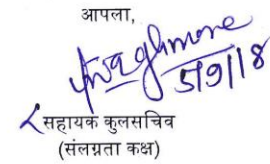 आपला,
5/9/18
सहायक कुलसचिव
(संलग्नता कक्ष)